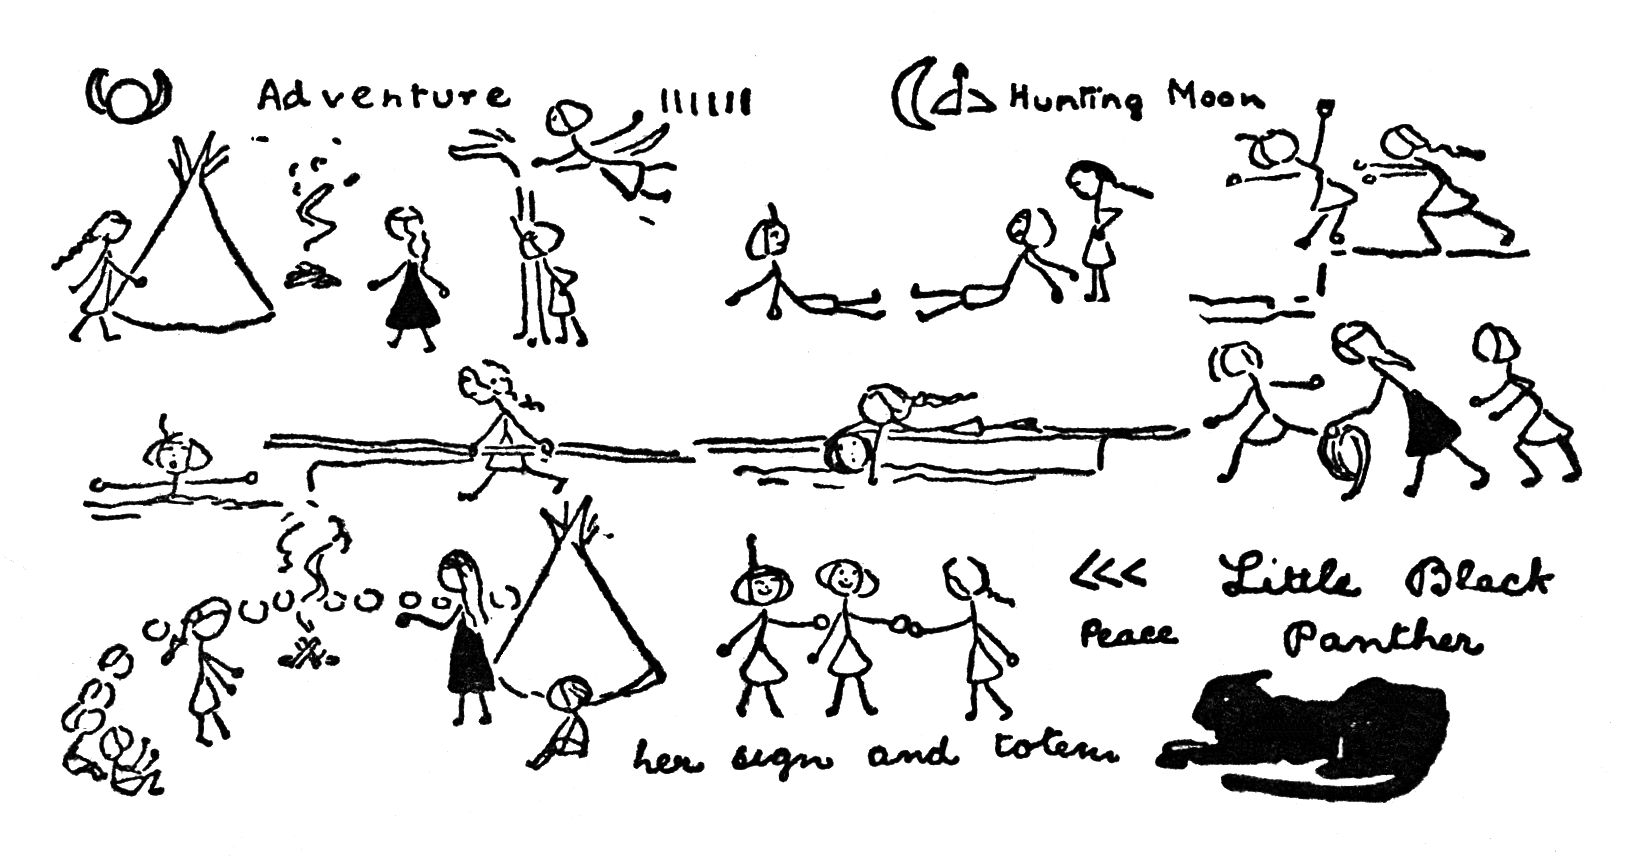 Adventure
Hunting Moon
Little Black
Peace
Panther
her sign and totem